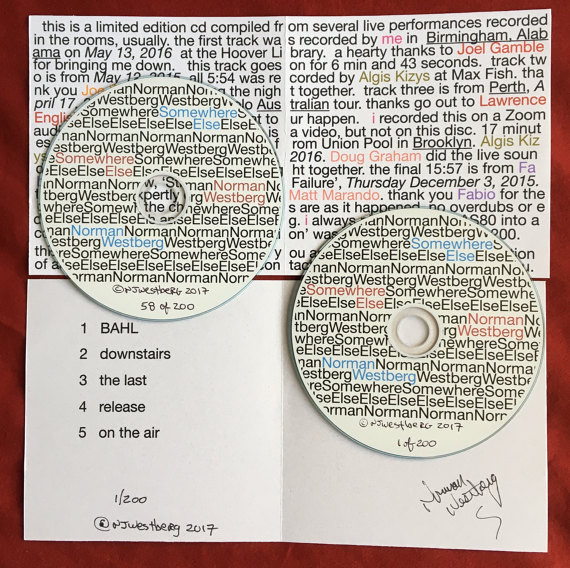 this is a limited edition cd compiled from several live performances recorded
in the rooms, usually. the first track was recorded by me in Birmingham, Alab
ama on May 13, 2016 at the Hoover Library. a hearty thanks to Joel Gamble
for bringing me down. this track goes on for 6 min and 43 seconds. track tw
o is from May 12, 2015 all 5:54 was recorded by Algis Kizys at Max Fish. tha
nk you the night together. track three is from Perth, A
pril 17 to Australian tour. thanks go out to Lawrence
English ur happen. i recorded this on a Zoom
audio a video, but not on this disc. 17 minut
rom Union Pool in Brooklyn. Algis Kiz
ys 2016. Doug Graham did the live soun
ht together. the final 15:57 is from Fa
Failure', Thursday December 3, 2015.
Matt Marando. thank you Fabio for the
s are as it happened, no overdubs or e
g. i always
NormanNormanNorman
WestbergWestbergWestberg
SomewhereSomewhere
ElseElseElseElse
NormanNormanNorman
SomewhereSomewhere
ElseElse
Norman
Westberg
NormanWestberg
NormanNormanNormanNorman
©NJWestberg 2017
58 of 200
NormanNormanNorman
WestbergWestbergWestberg
SomewhereSomewhere
ElseElseElseElse
NormanNormanNormanNorman
WestbergWestbergWestberg
SomewhereSomewhereSome
ElseElseElseElseElse
Norman
WestbergWestberg
NormanNormanNormanNorman
WestbergWestbergWestberg
SomewhereSomewhereSome
ElseElseElseElseElse
NormanNormanNorman
©NJWestberg 2017
1 of 200
1 BAHL
2 downstairs
3 the last
4 release
5 on the air
1/200
©NJWestberg 2017
Norman
Westberg